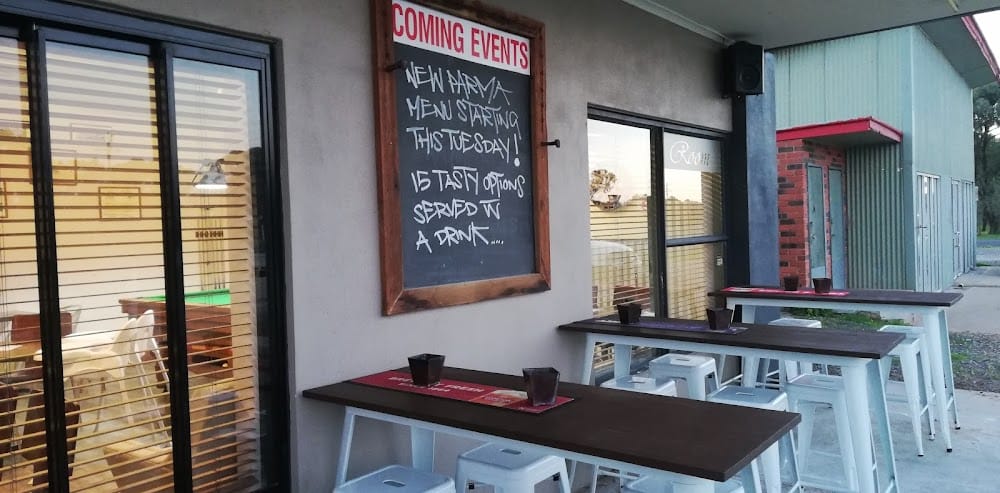 COMING EVENTS
NEW PARMA
MENU STARTING
THIS TUESDAY!
15 TASTY OPTIONS
SERVED IN
A DRINK....
Room